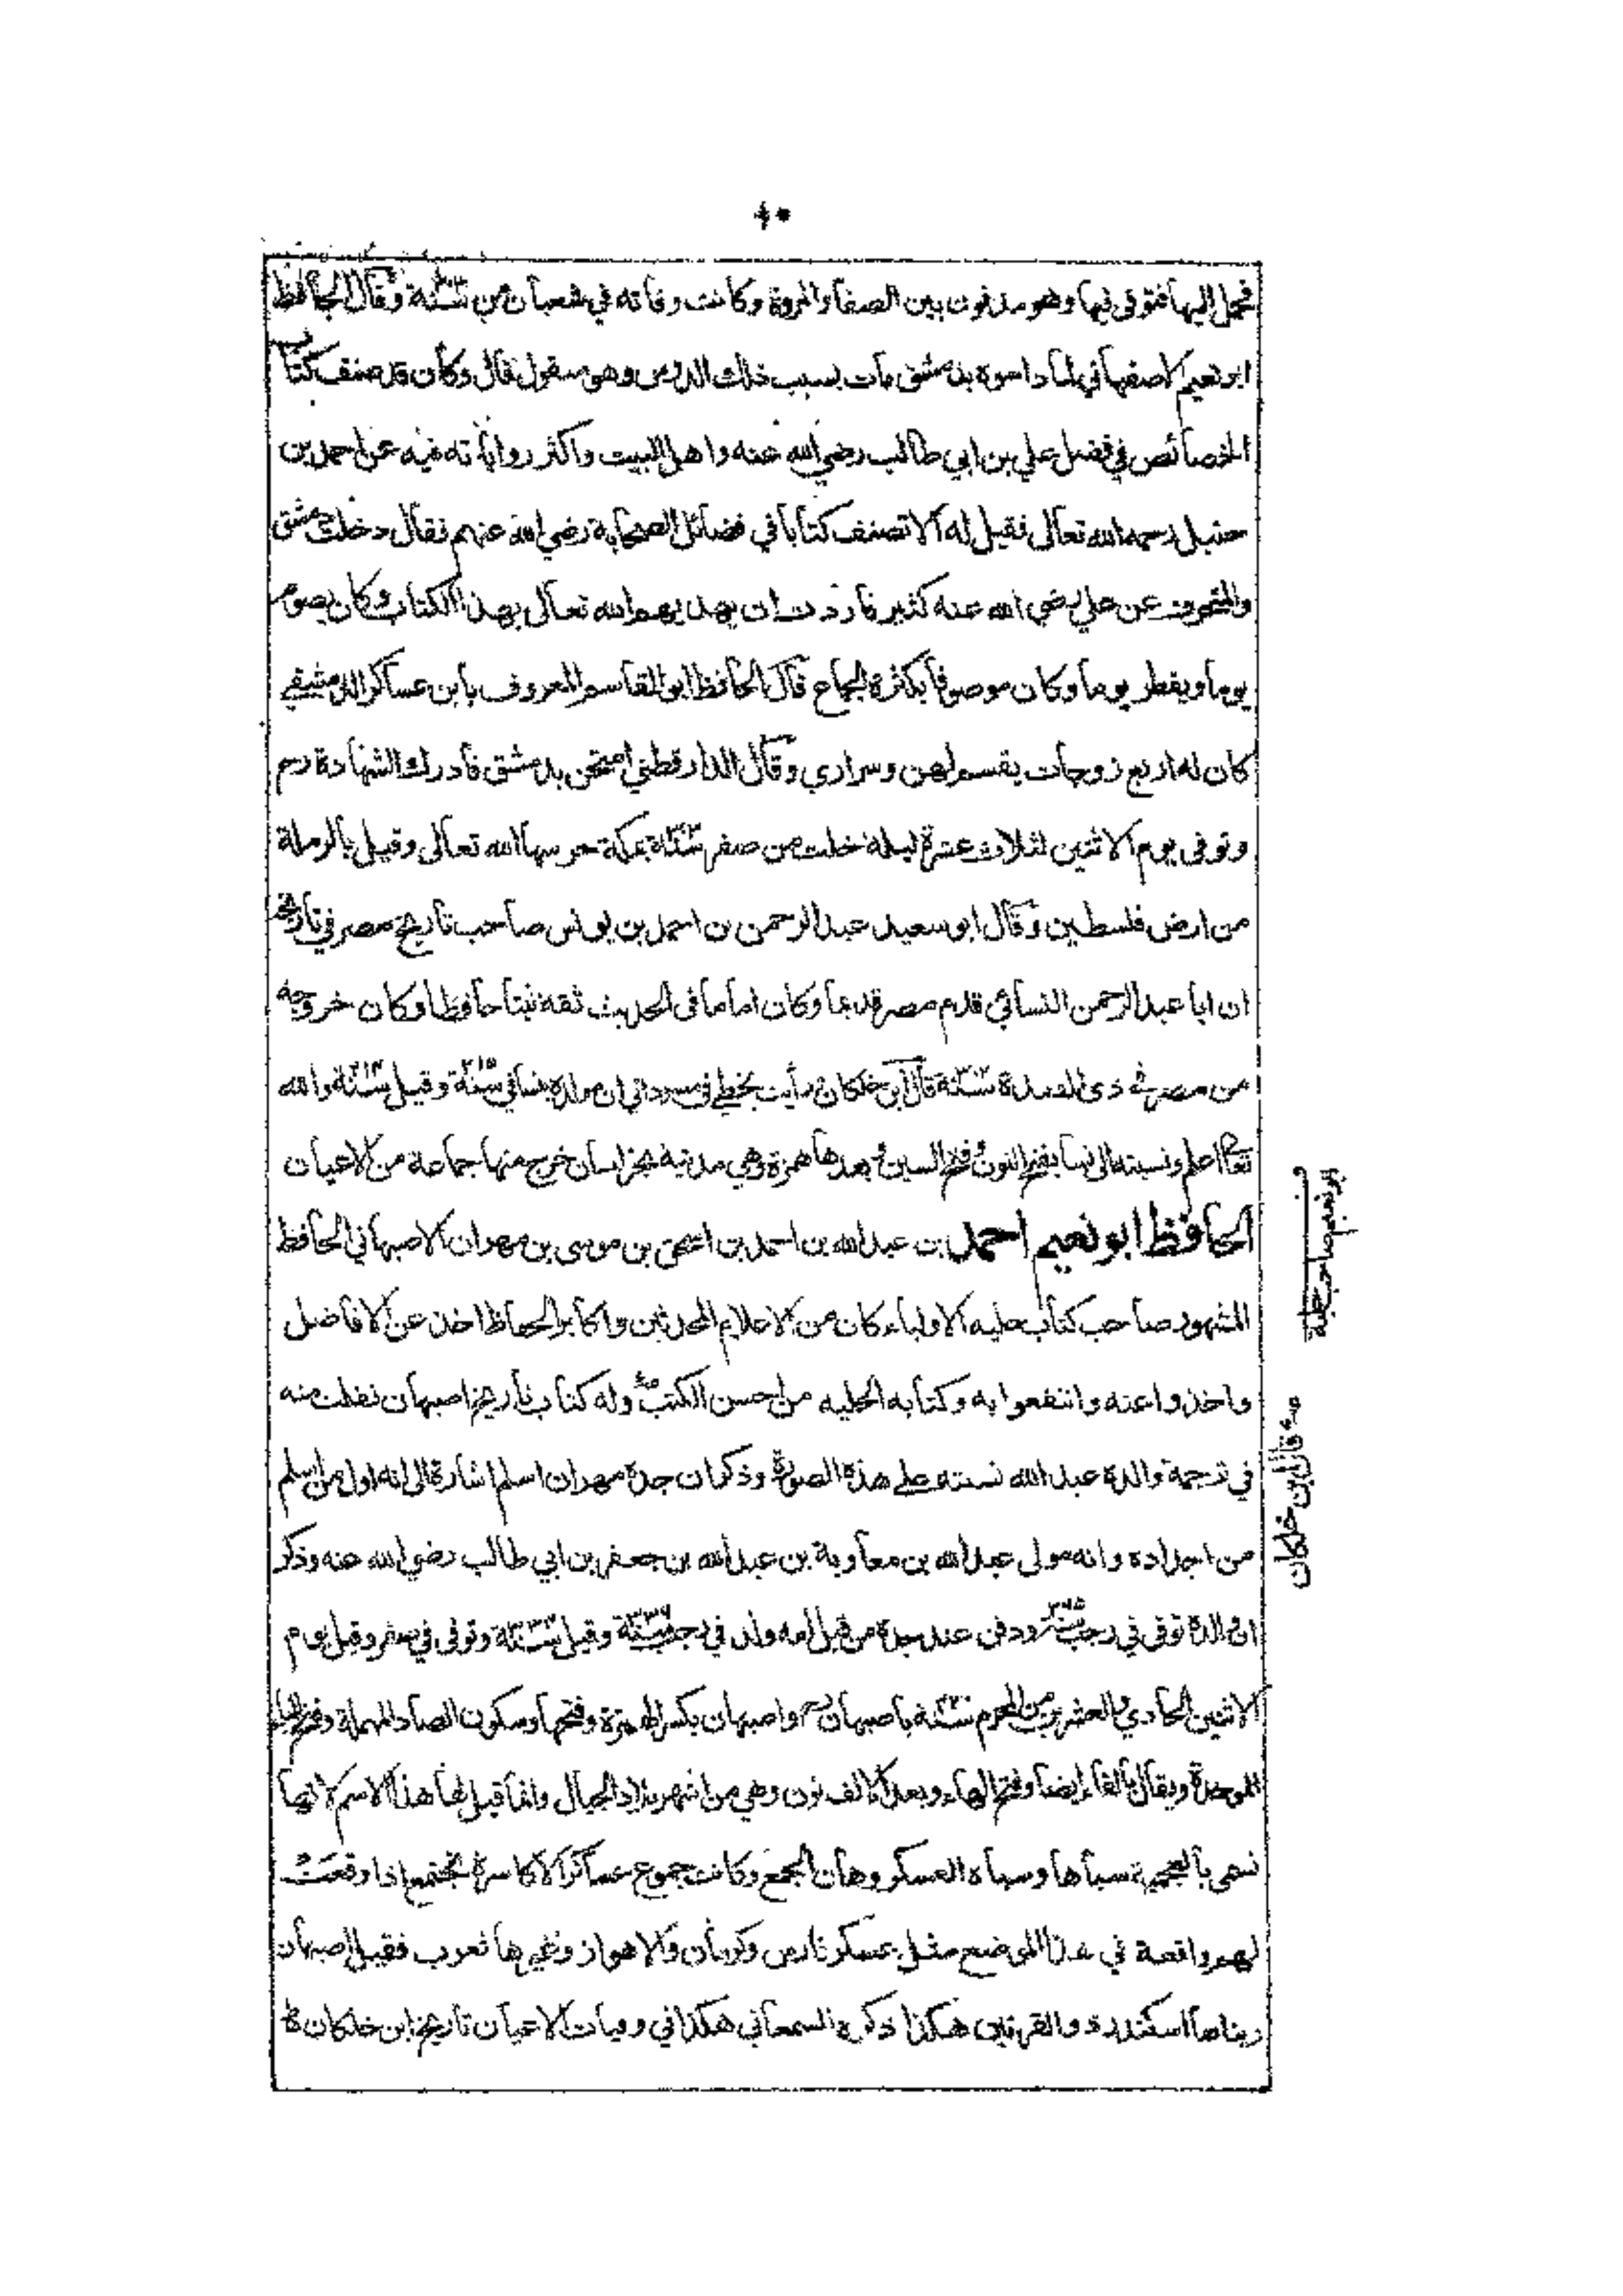 فحمل اليها فتوفى بها وهو مدفون بين الصفا والمروة وكانت وفاته في شعبان من سنة وقال الحافظ
ابو نعيم الاصفهاني لما داسوه بدمشق مات بسبب ذلك الدوس وهو منقول قال وكان قد صنف كتاب
الخصائص في فضل علي بن ابي طالب رضي الله عنه واهل البيت واكثر رواياته فيه عن احمد بن
حنبل رحمه الله تعالى فقيل له الا تصنف كتابا في فضائل الصحابة رضي الله عنهم فقال دخلت دمشق
والمنحرف عن علي رضي الله عنه كثير فاردت ان يهديهم الله تعالى بهذا الكتاب وكان يصوم
يوما ويفطر يوما وكان موصوفا بكثرة الجماع قال الحافظ ابو القاسم المعروف بابن عساكر الدمشقي
كان له اربع زوجات يقسم لهن وسراري وقال الدارقطني امتحن بدمشق فادرك الشهادة رح
وتوفى يوم الاثنين لثلاث عشرة ليلة خلت من صفر سنة بمكة حرسها الله تعالى وقيل بالرملة
من ارض فلسطين وقال ابو سعيد عبد الرحمن بن احمد بن يونس صاحب تاريخ مصر في تاريخه
ان ابا عبد الرحمن النسائي قدم مصر قديما وكان اماما في الحديث ثقة ثبتا حافظا وكان خروجه
من مصر في ذي القعدة سنة قال ابن خلكان رأيت بخطي في مسوداتي ان مولده بنسا في سنة وقيل سنة والله
تعالى اعلم ونسبته الى نسا بفتح النون وفتح السين وبعدها همزة وهي مدينة بخراسان خرج منها جماعة من الاعيان
الحافظ ابو نعيم احمد بن عبد الله بن احمد بن اسحق بن موسى بن مهران الاصبهاني الحافظ
المشهور صاحب كتاب حلية الاولياء كان من الاعلام المحدثين واكابر الحفاظ اخذ عن الافاضل
واخذوا عنه وانتفعوا به وكتابه الحليه من احسن الكتب وله كتاب تاريخ اصبهان نقلت منه
في ترجمة والده عبد الله نسبته على هذه الصورة وذكر ان جده مهران اسلم اشارة الى انه اول من اسلم
من اجداده وانه مولى عبد الله بن معاوية بن عبد الله بن جعفر بن ابي طالب رضي الله عنه وذكر
ان والده توفى في رجب سنة ٣٦٥ ودفن عند جده من قبل امه ولد في رجب سنة وقيل سنة وتوفى في صفر وقيل يوم
الاثنين الحادي والعشرين من المحرم سنة باصبهان رح واصبهان بكسر الهمزة وفتحها وسكون الصاد المهملة وفتح الباء
الموحدة ويقال بالفاء ايضا وفتح الهاء وبعد الالف نون وهي من اشهر بلاد الجبال وانما قيل لها هذا الاسم لانها
تسمى بالعجمية سباها وسباه العسكر وهان الجمع وكانت جموع عساكر الاكاسرة تجتمع اذا وقعت
لهم واقعة في هذا الموضع مثل عسكر فارس وكرمان والاهواز وغيرها فعرب فقيل اصبهان
وبناها اسكندر ذو القرنين هكذا ذكره السمعاني هكذا في وفيات الاعيان تاريخ ابن خلكان
ابو نعيم صاحب حلية
قال ابن خلكان